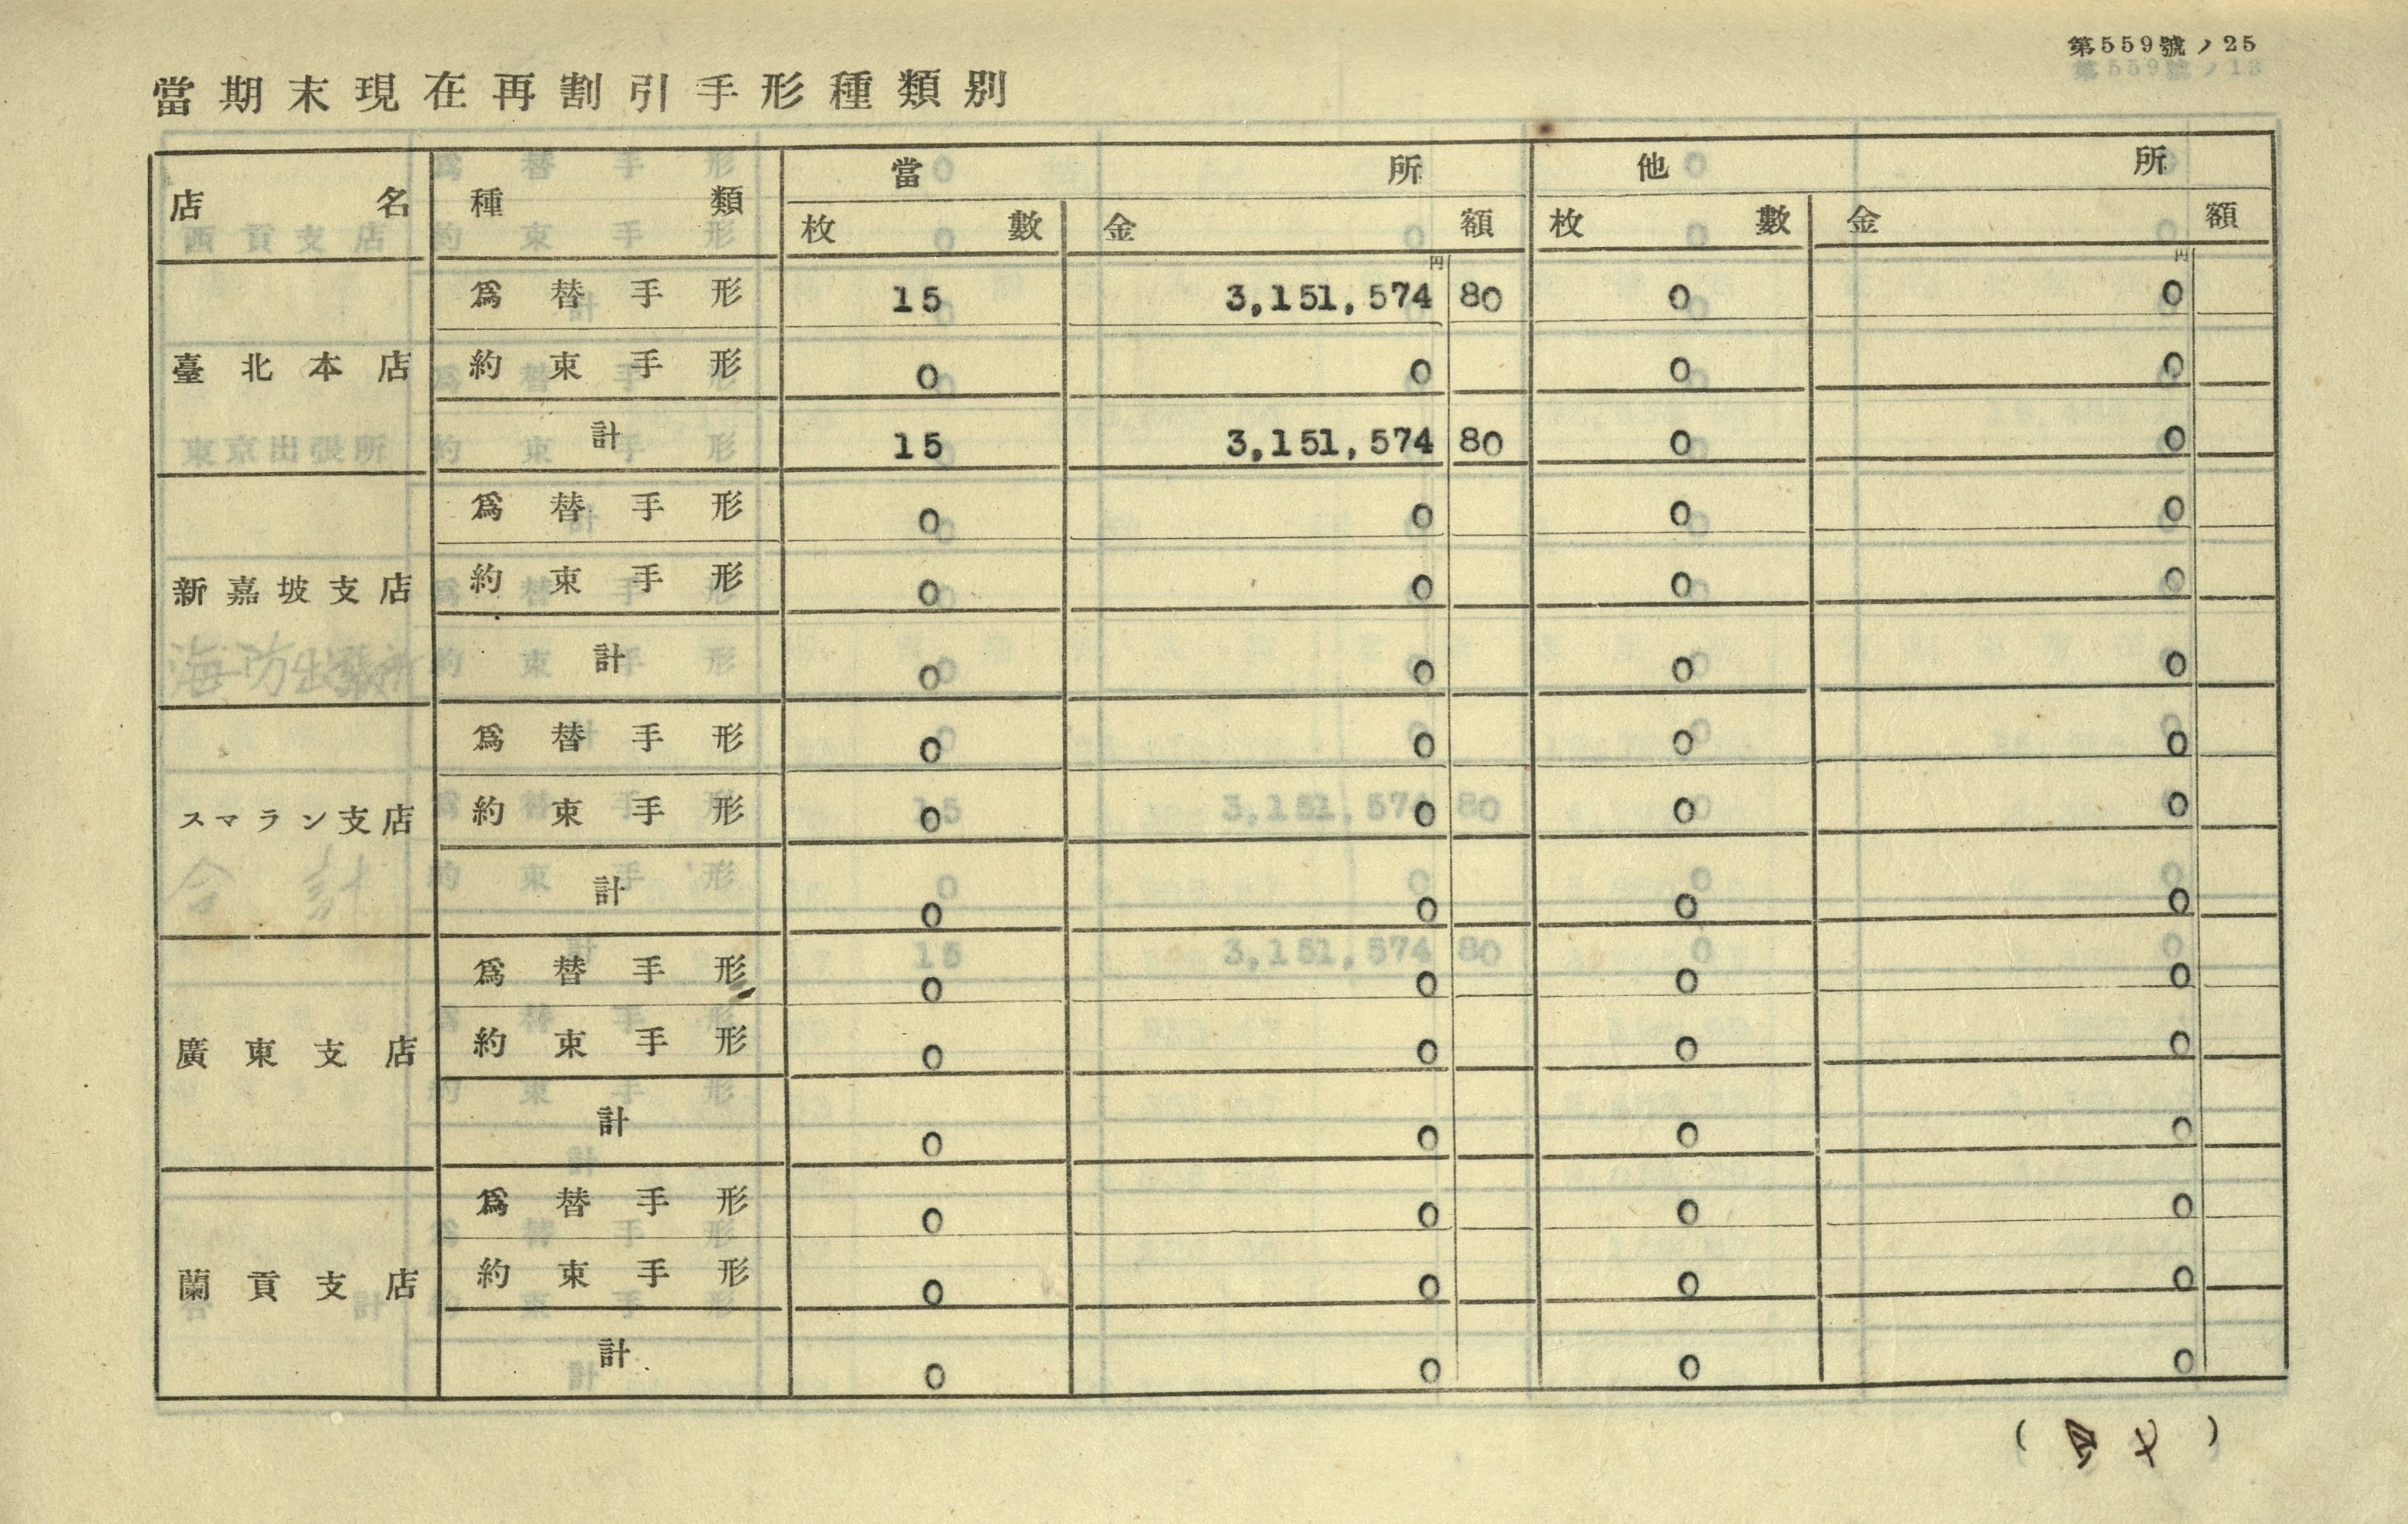 第559號ノ25
當期末現在再割引手形種類別
店名 種類 當所 他所
枚數 金額 枚數 金額
円 円
臺北本店 爲替手形 15 3,151,574 80 0 0
約束手形 0 0 0 0
計 15 3,151,574 80 0 0
新嘉坡支店 爲替手形 0 0 0 0
約束手形 0 0 0 0
計 0 0 0 0
スマラン支店 爲替手形 0 0 0 0
約束手形 0 0 0 0
計 0 0 0 0
廣東支店 爲替手形 0 0 0 0
約束手形 0 0 0 0
計 0 0 0 0
蘭貢支店 爲替手形 0 0 0 0
約束手形 0 0 0 0
計 0 0 0 0